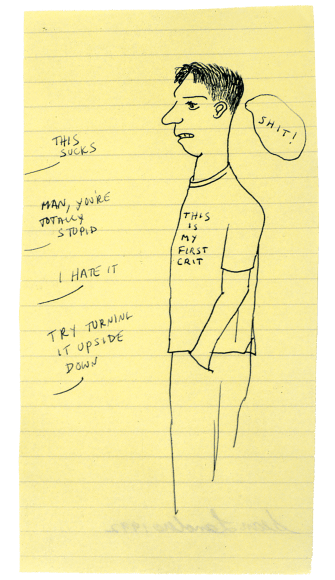 THIS
SUCKS
MAN, YOU'RE
TOTALLY
STUPID
I HATE IT
TRY TURNING
IT UPSIDE
DOWN
SHIT!
THIS
IS
MY
FIRST
CRIT
Sean Landers 1992